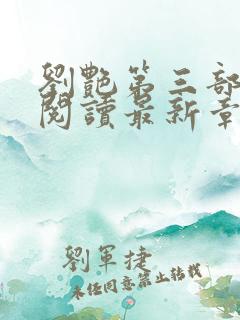 劉艷第三部
閱讀最新章
劉軍捷
未經同意禁止轉載